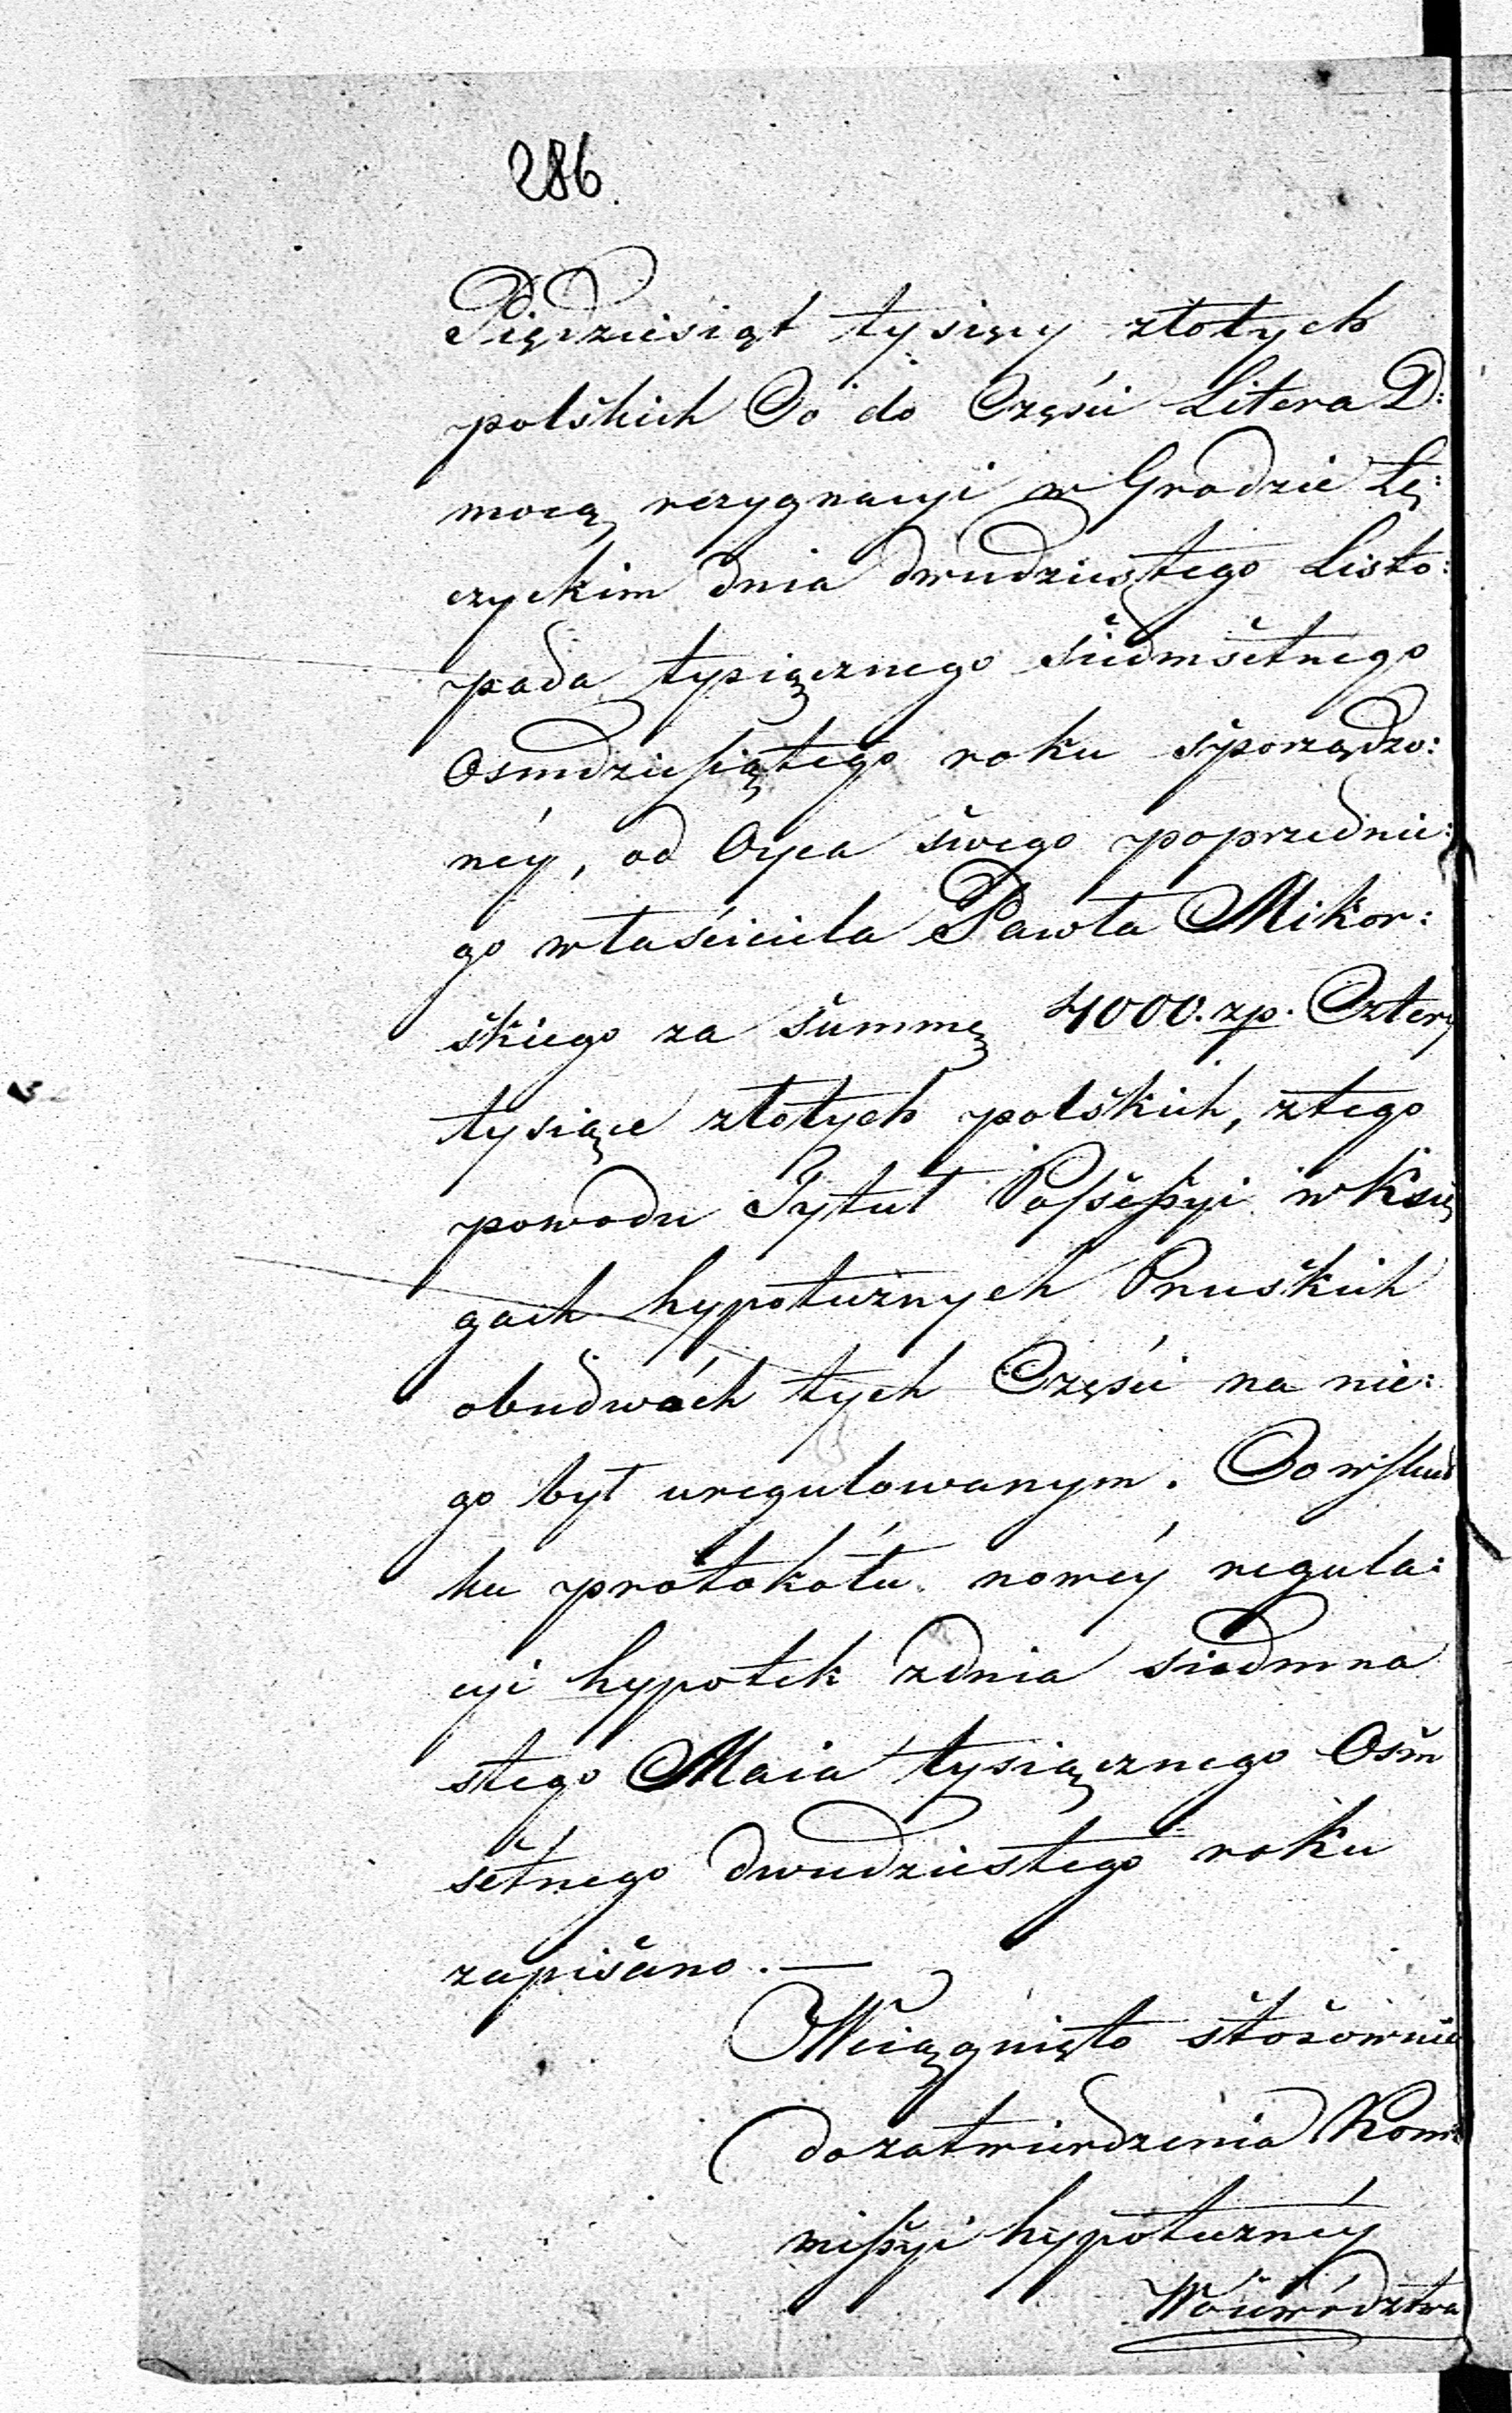 286.
Piędziesiąt tysięcy złotych
polskich Co do Części Litera D:
mocą rezygnacyi w Grodzie Łę:
czyckim dnia dwudziestego Listo:
pada tysiącznego siedmsetnego
Osmdziesiątego roku sporządzo:
néy, od Oyca swego poprzednie:
go właściciela Pawła Mikor:
skiego za summę 4000. zp. Cztery
tysiące złotych polskich, ztego
powodu Tytuł Possessyi w Księ
gach hypotecznych Pruskich
obudwóch tych Części na nie:
go był uregulowanym. Co w skut
ku protokołu nowéy regula:
cyi hypotek zdnia siedmna
stego Maia tysiącznego Osm
setnego dwudziestego roku
zapisano. —
Wciągnięto stosownie
do zatwierdzenia Kom
missyi hypotecznéy
Woiewództwa